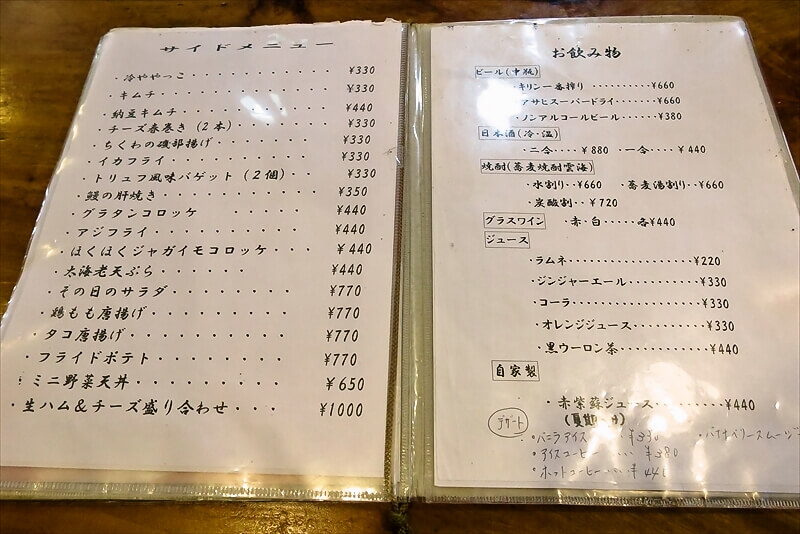 サイドメニュー
・冷ややっこ・・・・・・・・・・ ¥330
・キムチ・・・・・・・・・・・・ ¥330
・納豆キムチ・・・・・・・・・・ ¥440
・チーズ春巻き（2本）・・・・・・ ¥330
・ちくわの磯部揚げ・・・・・・・ ¥330
・イカフライ・・・・・・・・・・ ¥330
・トリュフ風味バゲット（2個）・・ ¥330
・鰻の肝焼き・・・・・・・・・・ ¥350
・グラタンコロッケ ・・・・・ ¥440
・アジフライ・・・・・・・・・・ ¥440
・ほくほくジャガイモコロッケ・・・ ¥440
・太海老天ぷら・・・・・・・ ¥440
・その日のサラダ・・・・・・・・ ¥770
・鶏もも唐揚げ・・・・・・・・・ ¥770
・タコ唐揚げ・・・・・・・・・・ ¥770
・フライドポテト・・・・・・・・ ¥770
・ミニ野菜天丼・・・・・・・・・ ¥650
・生ハム＆チーズ盛り合わせ・・・ ¥1000
お飲み物
ビール(中瓶)
・キリン一番搾り ・・・・・・・・・・¥660
・アサヒスーパードライ・・・・・・¥660
・ノンアルコールビール・・・・・・¥380
日本酒(冷・温)
・二合・・・¥880 ・一合・・・¥440
焼酎(蕎麦焼酎雲海)
・水割り・・¥660 ・蕎麦湯割り・・¥660
・炭酸割・・¥720
グラスワイン ・赤・白・・・・・各¥440
ジュース
・ラムネ・・・・・・・・・・・・・・・¥220
・ジンジャーエール・・・・・・・・・¥330
・コーラ・・・・・・・・・・・・・・・¥330
・オレンジジュース・・・・・・・・・¥330
・黒ウーロン茶・・・・・・・・・・・¥440
自家製
・赤紫蘇ジュース・・・・・・・・・¥440
(夏期
デザート
・バニラアイス ¥330
・アイスコーヒー・・・・ ¥380
・ホットコーヒー・・・・ ¥44